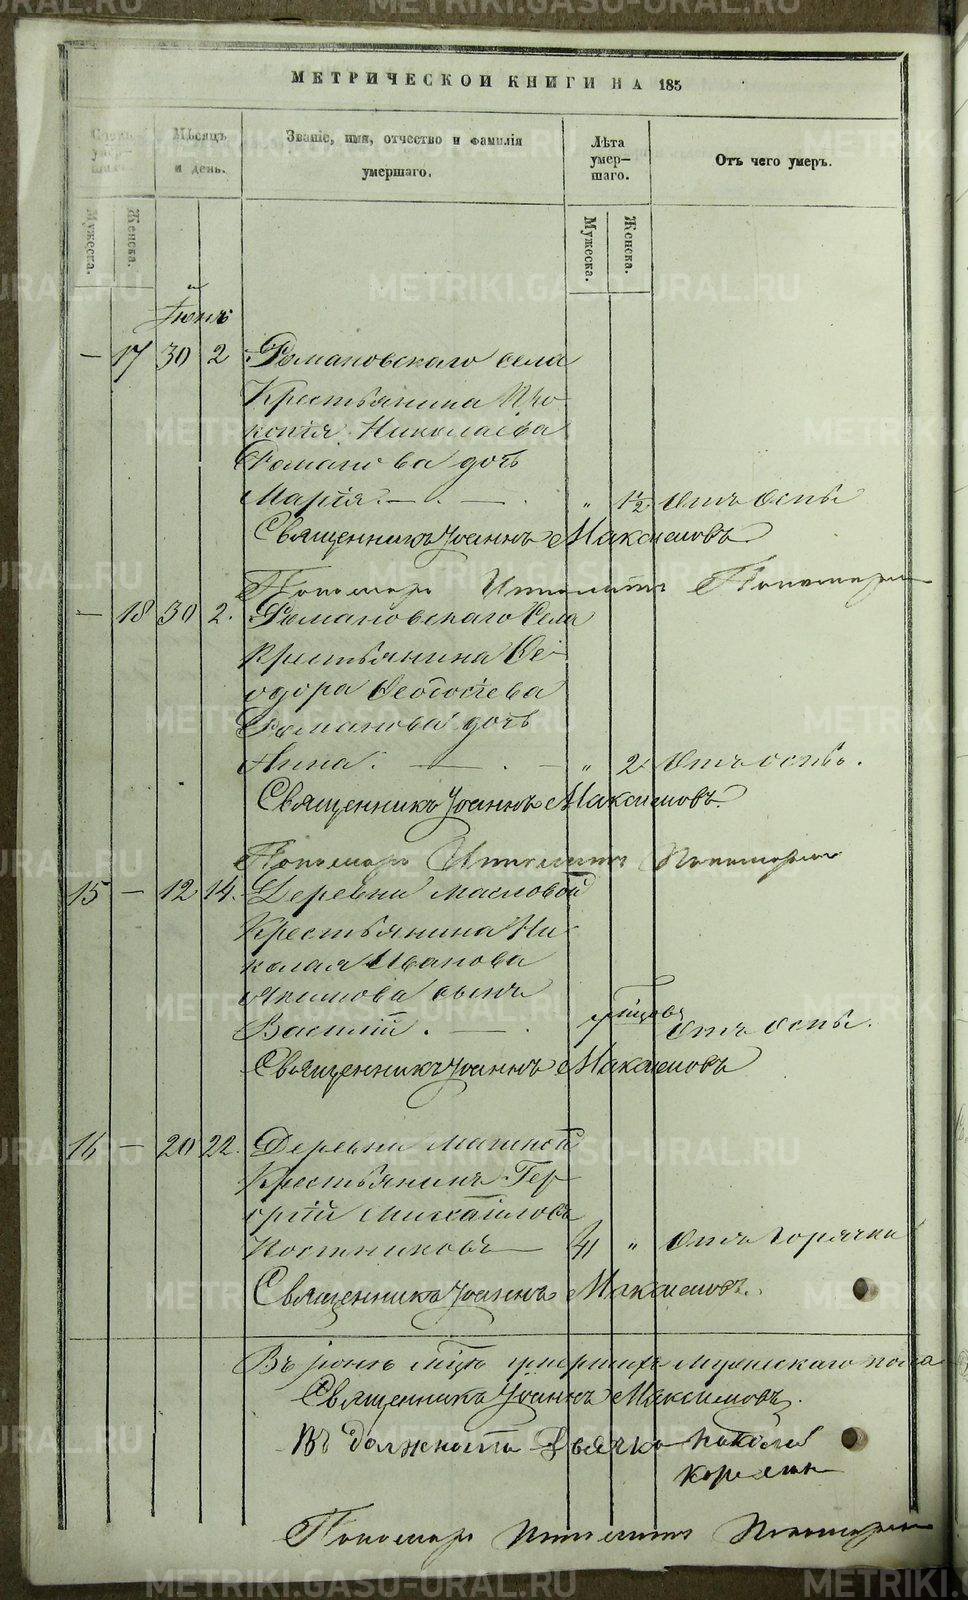 METRIKI.GASO-URAL.RU
МЕТРИЧЕСКОЙ КНИГИ НА 185
умер-
Мѣсяцъ
и день.
Званіе, имя, отчество и фамилія
умершаго.
Лѣта
умер-
шаго.
Отъ чего умеръ.
Мужеска.
Женска.
Мужеска.
Женска.
Іюнь
— 17 30 2 Романовскаго села
Крестьянина Про
копія Николаева
Романова дочь
Марія. — . — . „ 1½ Отъ Оспы
Священникъ Іоаннъ Максимовъ
Пономарь Ипполитъ Пономарев
— 18 30 2. Романовскаго Села
Крестьянина Ѳе-
одора Ѳеодосіева
Романова дочь
Анна. — . — „ 2 Отъ оспы.
Священникъ Іоаннъ Максимовъ.
Пономарь Ипполитъ Пономарев
15 — 12 14. Деревни Масловой
Крестьянина Ни-
колая Иванова
Якимова сынъ
Василій. — . Отъ Оспы.
Священникъ Іоаннъ Максимовъ
16 — 20 22. Деревни
Крестьянинъ Ге
оргій Михайловъ
Постниковъ — 41 „ Отъ Горячки
Священникъ Іоаннъ Максимовъ.
Въ Іюнѣ мцѣ умершихъ Мужескаго пола
Священникъ Іоаннъ Максимовъ.
Въ должности Дьячка Николай
Пономарь Ипполитъ Пономарев